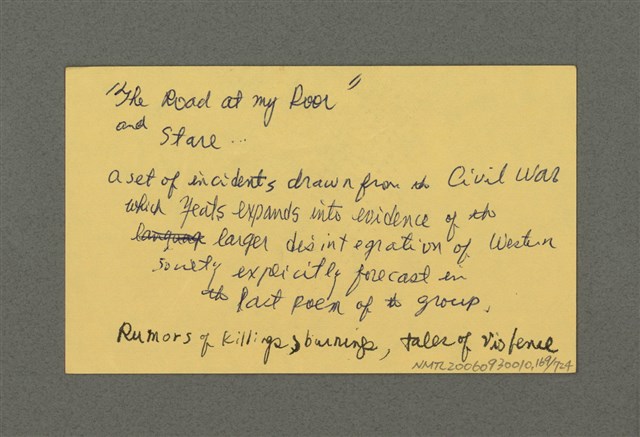 "The Road at my Door"
and
Stare ...
a set of incidents drawn from th Civil War
which Yeats expands into evidence of th
language larger disintegration of Western
society explicitly forecast in
th last poem of th group.
Rumors of killings, burnings, tales of violence
NMTL20060930010.169/724